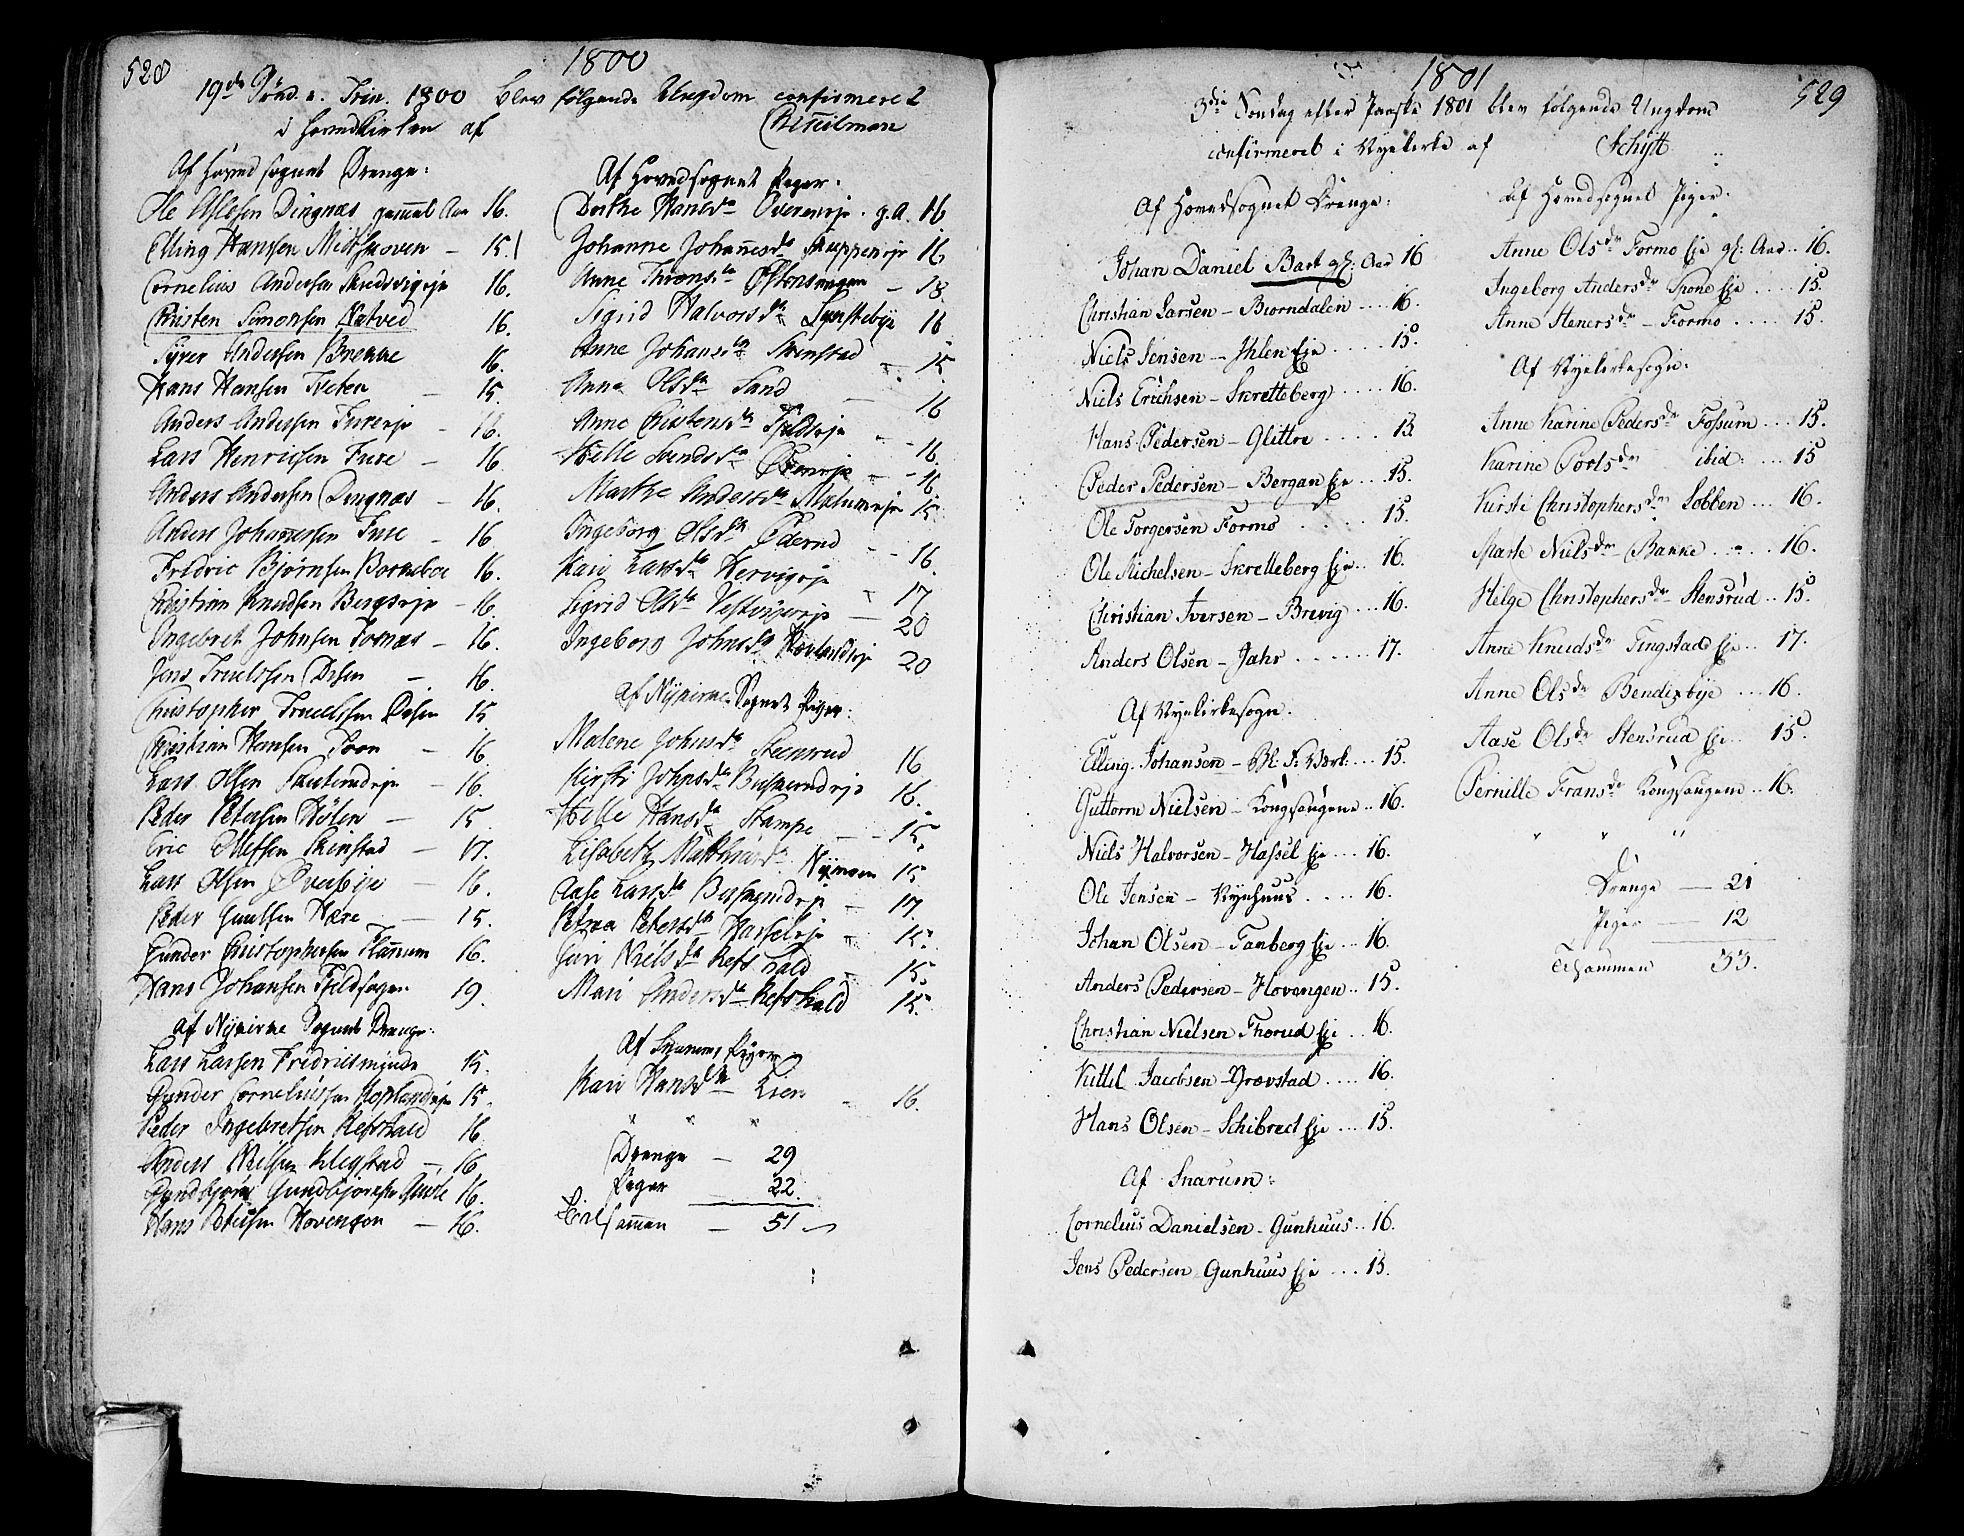 528
1800
19de Sønd. e. Trin. 1800 blev følgende Ungdom confirmeret
i Hovedkirken af
Af Hovedsognet Drenge:
Ole Olsen Dingnæs gammel Aar 16.
Elling Hanssen Midtskoven – 15
Cornelius Andersen 16.
Christen Simonsen Natved 16.
Syver Andersen Brekke 16.
Hans Hansen Tveten – 15.
Anders Andersen Fureeje – 16.
Lars Henriksen Fure – 16
Anders Andersen Dingnæs – 16.
Anders Johannessen Fure – 16
Fredric Bjørnsen 16.
Christian Knudsen Bergseje – 16.
Ingebret Johnsen Fornæs – 16.
Jens Truelssen Disen – 16.
Christopher Truelssen Disen 15
Christian Hansen Foon – 16.
Lars Olsen – 16.
Peder Petersen – 15.
Eric Skinstad – 17.
Lars Olsen Øversbye – 16.
Peder Hære – 15.
Gunder Christophersen Flannum 16.
Hans Johansen 19.
af Nykirke Sognet Drenge:
Lars Larsen Fredricsminde 15.
Gunder Corneliussen 15.
Peder Ingebretsen Refshald 16
Anders Nielsen – 16
Gundbjørn Gundbjørnsen 16.
Hans Petersen Hovengen – 16.
Af Hovedsognet Piger:
Dorthe Hansda g.A. 16
Johanne Johannesda 16
Anne Thronsda – 18.
Sigrid Halvorsda 16
Anne Johansda Skinstad – 15
Anne Olsda Sand – 16
Anne Christensda – 16
Helle Svendsda – 16
Marthe Andersda 15
Ingeborg Olsda – 16.
Kari Larsda 17
Sigrid Olsda – 20
Ingeborg Johnsda 20
af Nykirke Sognet Piger:
Malene Johnsda Steensrud 16
Kirsti Johnsda Buskerudeje 16.
Helle Hansda Stampe – 15.
Lisabeth Nymoen 15
Aase Larsda Buskerudeje – 17.
Petraa Petersda Hasseleje – 15.
Guri Nielsda Refshald 15.
Mari Andersda Refshald 15.
Af Snarums Piger
Kari Hansda Lien 16.
Drenge – 29
Piger 22
Tilsammen – 51
1801
529
3die Søndag efter Paaske 1801 blev følgende Ungdom
confirmeret i Nykirke af Schÿtt
Af Hovedsognet Drenge:
Johan Daniel Bark gl: Aar 16
Christian Larsen – Biørndalen .... 16.
Niels Jensen – Ihlen Eje ..... 15.
Niels Erichsen – Skretteberg .... 16.
Hans Pedersen – Glittre ..... 15
Peder Pedersen – Bergan Eje ... 15.
Ole Torgersen Formo ..... 15.
Ole Michelsen – Skretteberg Eje .. 16.
Christian Iversen – Brevig ... 16.
Anders Olsen – Jahr ...... 17.
Af Nykirkesogn.
Elling Johansen – Bl. F. Værk ... 15.
Guttorm Nielsen – Kongsaugene .. 16.
Niels Halvorsen – Hassel Eje ... 16.
Ole Jensen – Nyehuus .... 16.
Johan Olsen – Tanberg Eje ... 16.
Anders Pedersen – Hovengen .. 15.
Christian Nielsen Thorud Eje .. 16.
Kittel Jacobsen – Grævstad .... 16.
Hans Olsen – Schibred Eje .... 15.
Af Snarum:
Cornelius Danielsen – Gunhuus .. 16.
Jens Pedersen Gunhuus Eje .... 15.
Af Hovedsognet Piger:
Anne Olsda Formo Eje gl: Aar .. 16.
Ingeborg Andersda Trone Eje ..... 15.
Anne Stenersda – Formo ..... 15.
Af Nykirkesogn:
Anne Karine Pedersda Fossum .... 15.
Karine Poulsda ibid: .... 15
Kirsti Christophersda Lobben ... 16.
Marte Nielsda – Bakke ..... 16.
Helge Christophersda – Stensrud .. 15.
Anne Knudsda Tingstad Eje .. 17.
Anne Olsda Bendixbÿe ... 16.
Aase Olsda Stensrud Eje .. 15.
Pernille Fransda Kongsaugene .. 16.
Drenge – 21
Piger – 12
Tilsammen 33.